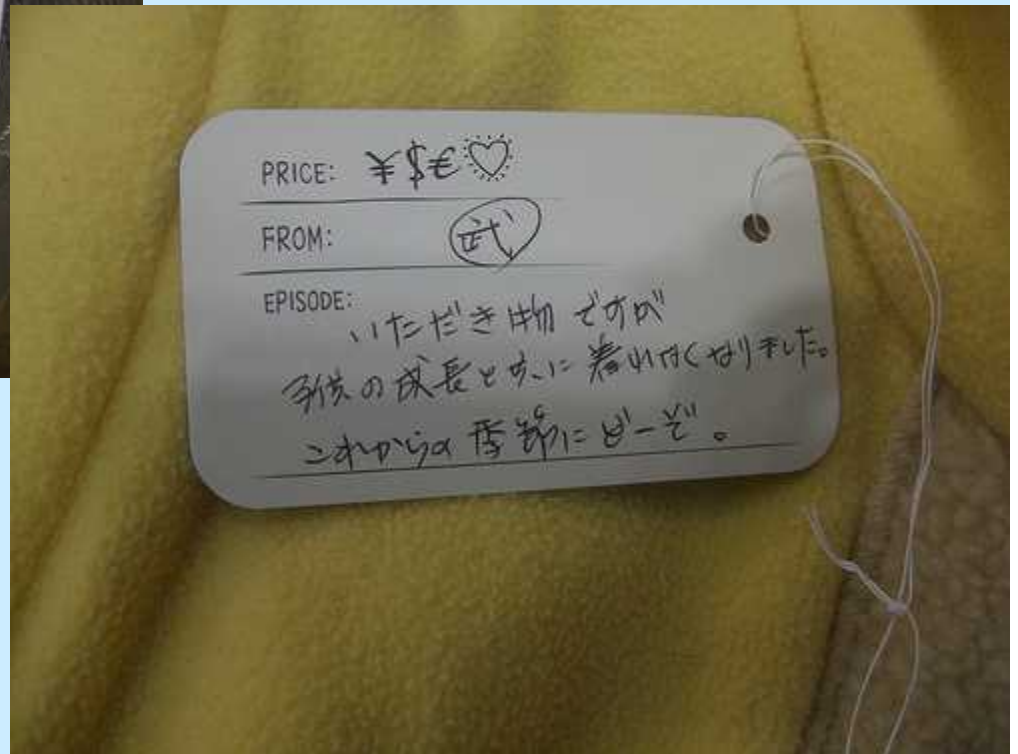 PRICE: ¥$€♡
FROM: 武
EPISODE:
いただき物ですが
子供の成長と共に着れなくなりました。
これからの季節にどーぞ。